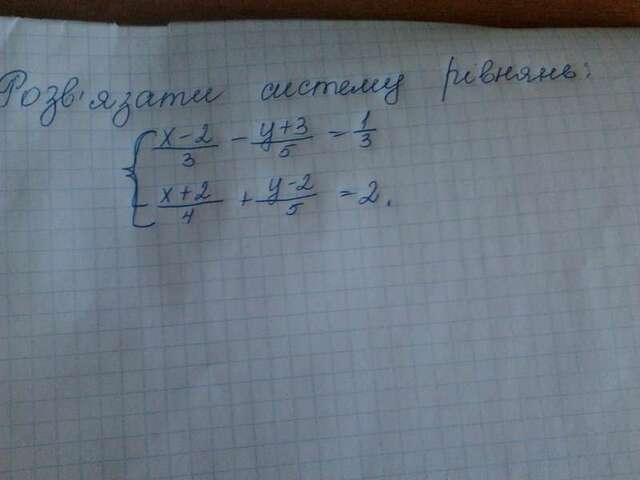 Розв'язати систему рівнянь:
{ (x-2)/3 - (y+3)/5 = 1/3
(x+2)/4 + (y-2)/5 = 2.